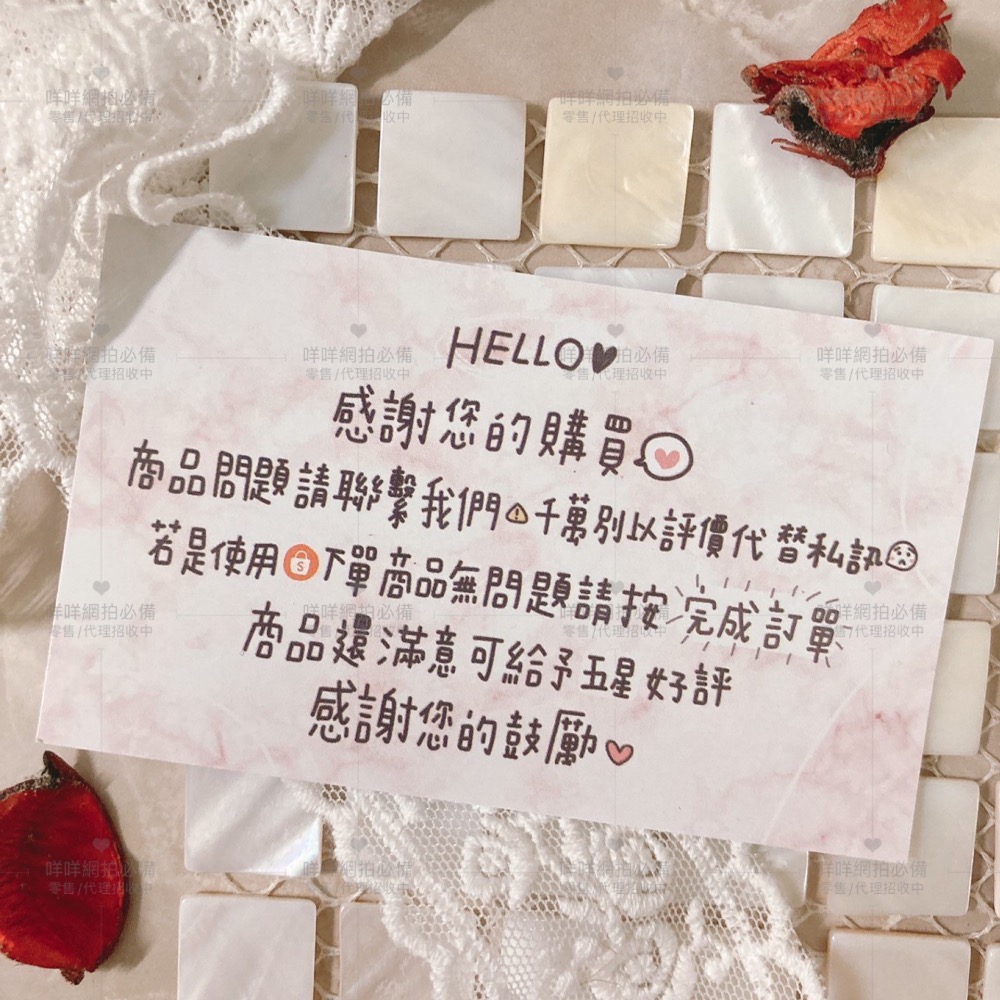 HELLO♥
感謝您的購買
商品問題請聯繫我們⚠千萬別以評價代替私訊
若是使用S下單商品無問題請按完成訂單
商品還滿意可給予五星好評
感謝您的鼓勵♥
咩咩網拍必備
零售/代理招收中